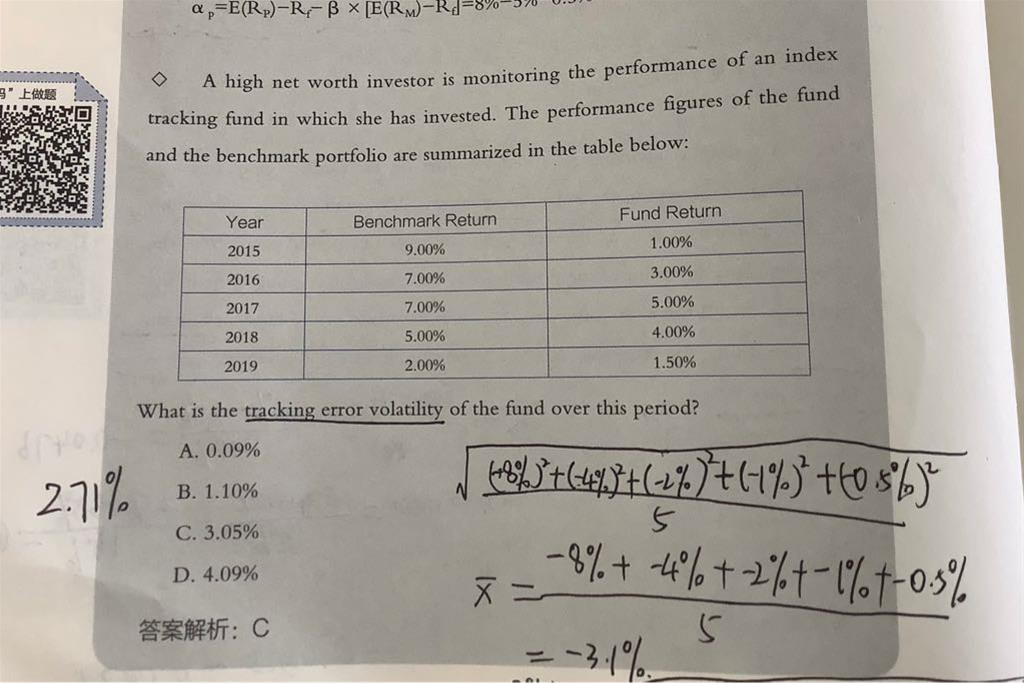 α p=E(RP)−Rf−β×[E(RM)−Rf]=8%−5%
码”上做题
◇ A high net worth investor is monitoring the performance of an index
tracking fund in which she has invested. The performance figures of the fund
and the benchmark portfolio are summarized in the table below:
Year Benchmark Return Fund Return
2015 9.00% 1.00%
2016 7.00% 3.00%
2017 7.00% 5.00%
2018 5.00% 4.00%
2019 2.00% 1.50%
What is the tracking error volatility of the fund over this period?
A. 0.09%
B. 1.10%
C. 3.05%
D. 4.09%
2.71%
√((-8%)²+(-4%)²+(-2%)²+(-1%)²+(-0.5%)²
5
x̄ = -8%+ -4%+-2%+-1%+-0.5%
5
= -3.1%.
答案解析：C